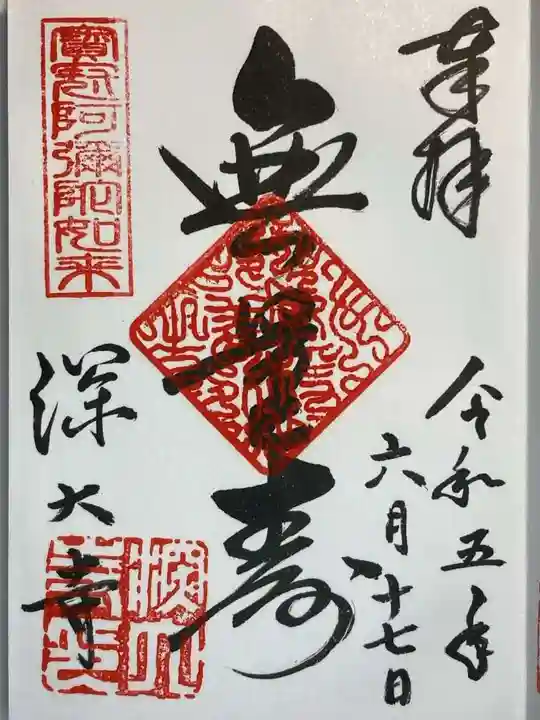 奉拝
令和五年
六月十七日
無量壽
寶冠阿彌陀如来
深大寺